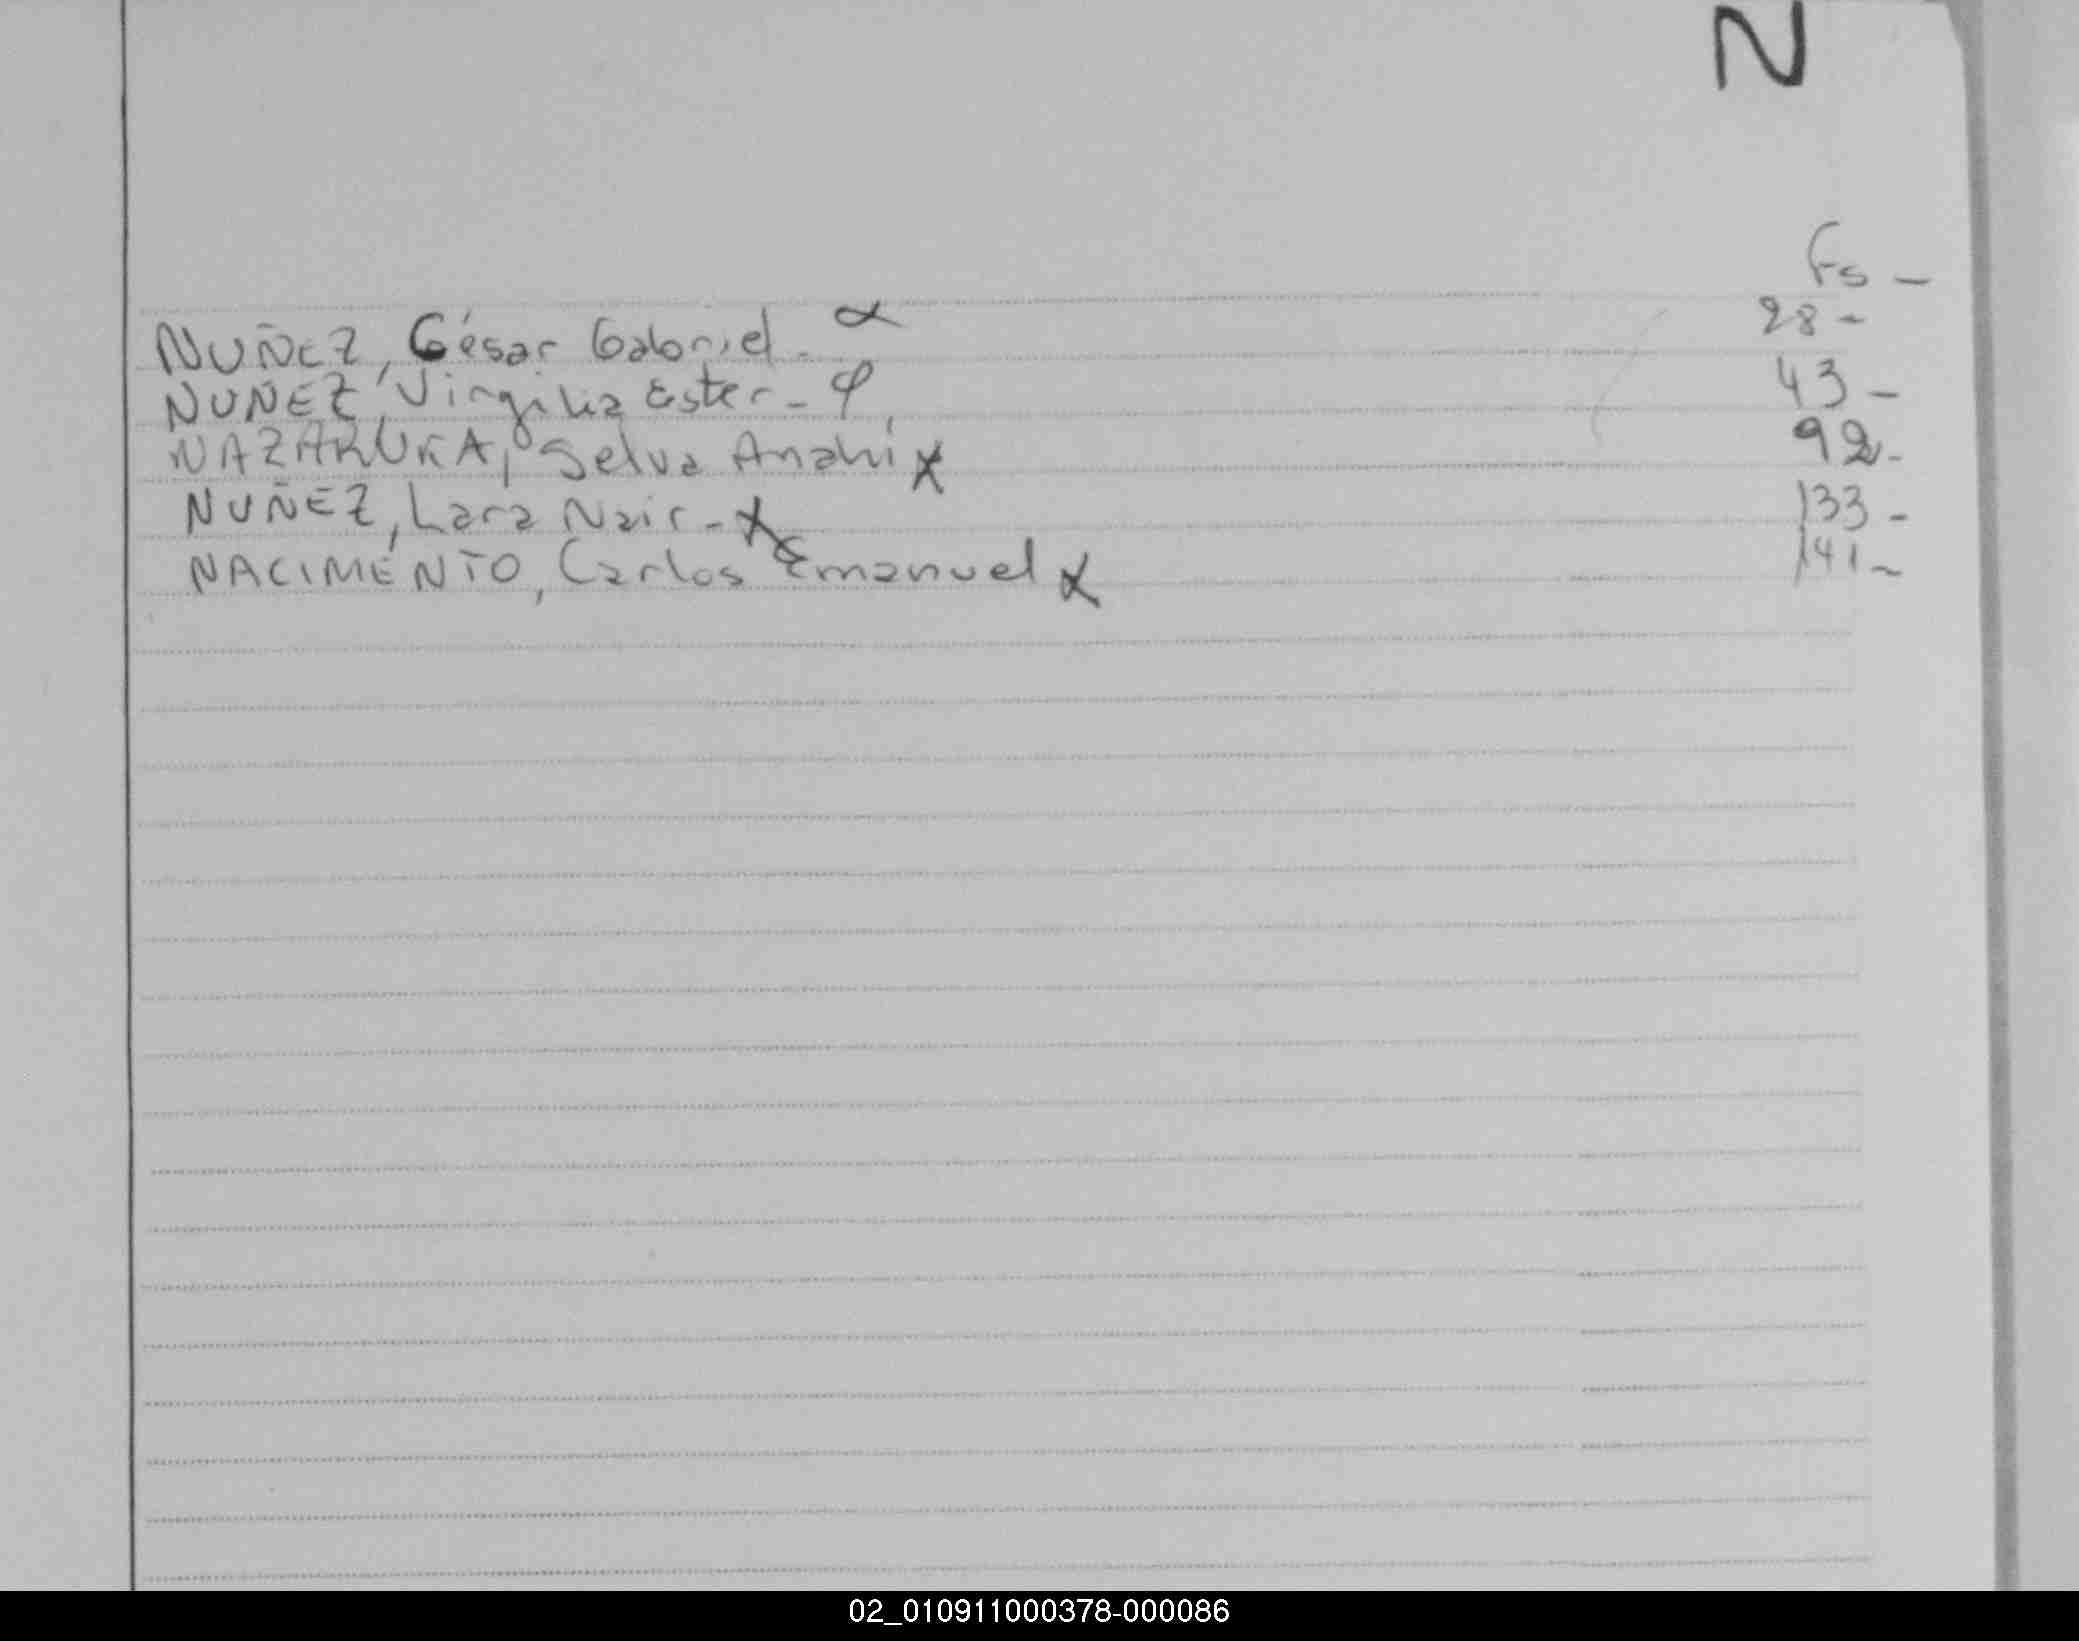 N
Fs -
NUÑEZ, César Gabriel - 28 -
NUÑEZ, Virgilia Ester - 43 -
NAZARUKA, Selva Anahí 92 -
NUÑEZ, Lara Nair - 133 -
NACIMENTO, Carlos Emanuel 141 -
02_010911000378-000086